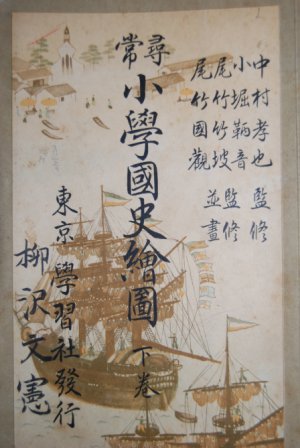 中村孝也 監修
小堀鞆音 監修
尾竹竹坡
尾竹國觀 並畫
尋常
小學國史繪圖 下巻
東京學習社發行
柳沢文憲